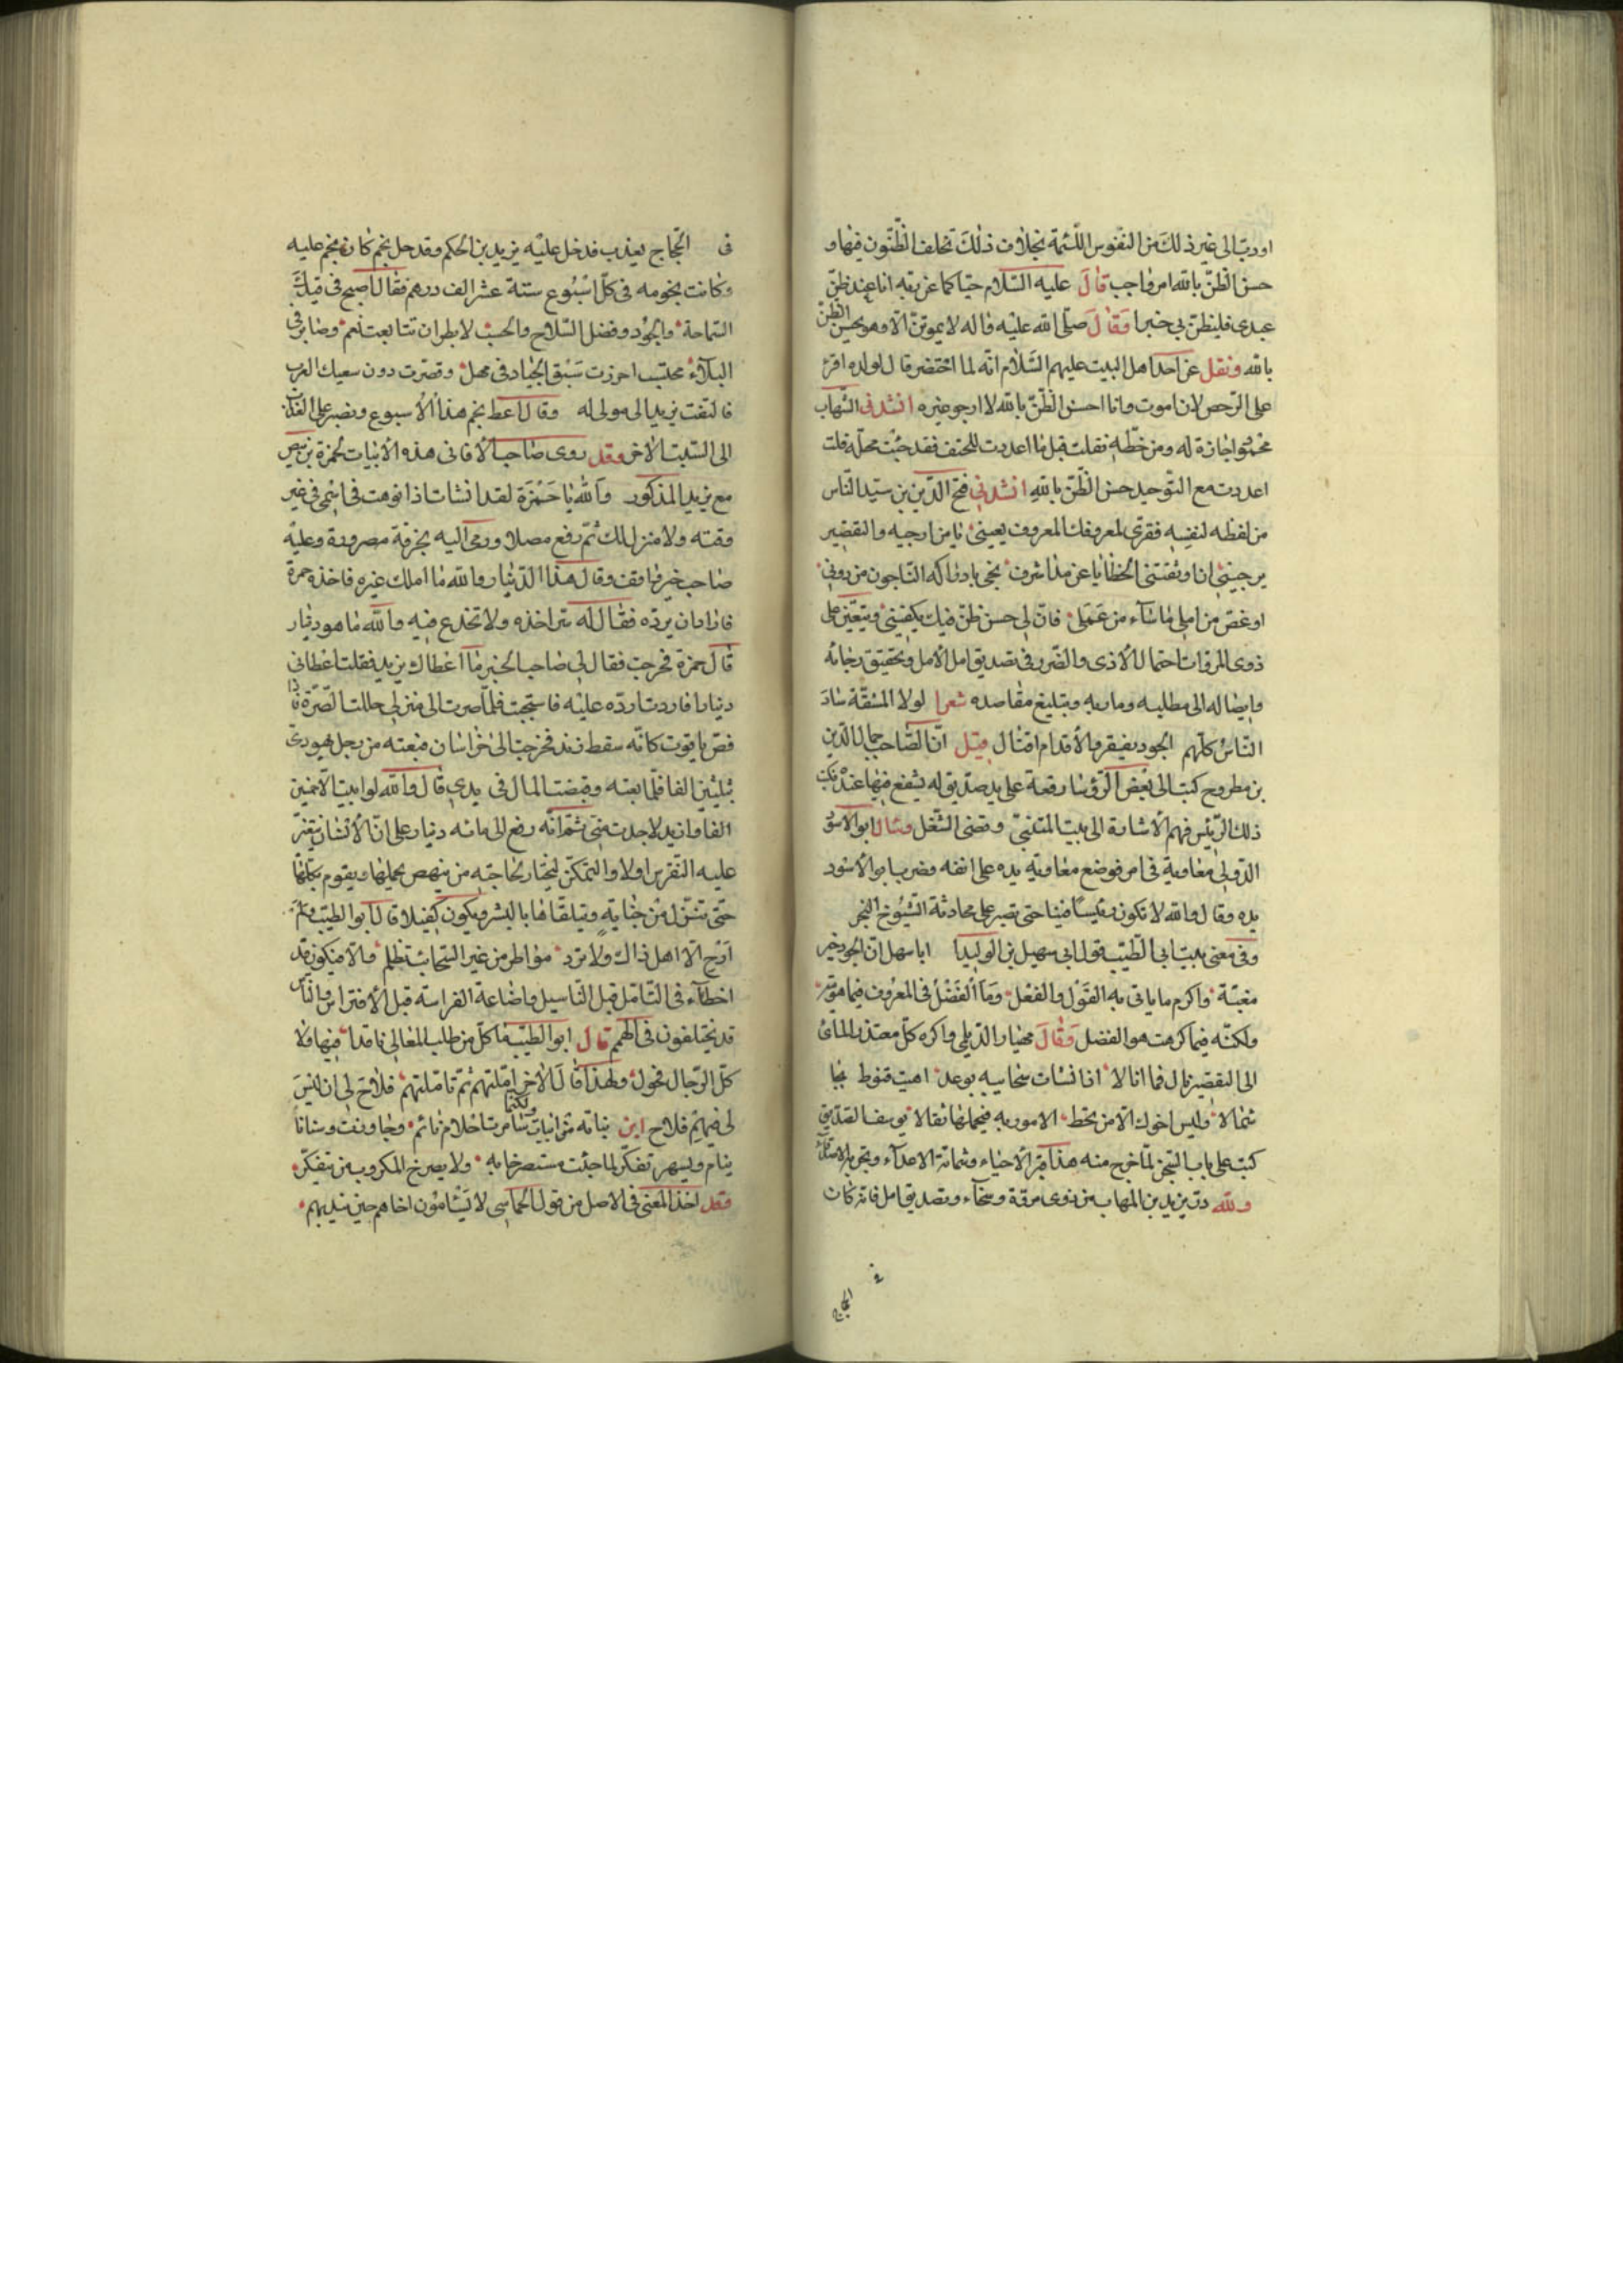 او دبّ الى غير ذلك من النفوس اللئيمة بخلاف ذلك تخلف الظنون فيها و
حسن الظن بالله امر واجب قال عليه السلام حيّا كما عن ربه انا عند ظن
عبدى فليظن بى خيرا وقال صلى الله عليه واله لا يموتن الا وهو يحسن الظن
بالله ونقل عن احد اهل البيت عليهم السلام انه لما احتضر قال لولده اقرء
على الرخص لان اموت وانا احسن الظن بالله لا ارجو غيره انشدنى الشهاب
محمود اجازة له ومن خطه نقلت قيل ما اعددت للحتف فقد جئت محله قلت
اعددت مع التوحيد حسن الظن بالله انشدنى فتح الدين بن سيد الناس
من لفظه لنفسه فقرى لمعروفك المعروف يعينى يا من ارجيه والتقصير
يرجينى ان اوبقتنى الخطايا عن مدا شرف نجى بادراكه الناجون من دونى
او غض من املى ما ساء من عملى فان لى حسن ظن فيك يكفينى ويتعين على
ذوى المروات احتمال الاذى والضرر فى تصديق امل الامل وتحقيق رجائه
وايصاله الى مطلبه ومآربه وتبليغ مقاصده شعرا لولا المشقة ساد
الناس كلهم الجود يفقر والاقدام قتال قيل ان الصاحب جمال الدين
بن مطروح كتب الى بعض الرؤسا رقعة على يد صديق له يشفع فيها عنده فكتب
ذلك الرئيس فهم الاشارة الى بيت المتنبى وقضى الشغل وسال ابو الاسود
الدؤلى معاوية فى امر فوضع معاوية يده على انفه وضرب ابو الاسود
يده وقال والله لا تكون رئيسا فينا حتى تصبر على محادثة الشيوخ البخر
وفى معنى بيت ابى الطيب قول ابى سهيل بن الوليد ابا سهل ان الجود خير
مغبة واكرم ما ياتى به القول والفعل وما الفضل فى المعروف فيما هويته
ولكنه فيما كرهت هو الفضل وقال مهيار الديلمى واكره كل معتذر المائ
الى التقصير نال فما انالا اذا نشات سحايبه بوعد اهبت قنوط
شمالا وليس اخوك الا من تخط الامور به فيحملها ثقالا يوسف الصديق
كتب على باب السجن لما خرج منه هذا قبر الاحياء وشماتة الاعداء وتجربة الاصدقاء
ولله در يزيد بن المهلب من ذوى مروة وسخاء وتصديق امل فانه كان
فى
الحجاج
فى الحجاج يعذب فدخل عليه يزيد بن الحكم وقد حل نجم كان نجم عليه
وكانت نجومه فى كل اسبوع ستة عشر الف درهم فقال اصبح فى قيدك
السماحة والجود وفضل الصلاح والحسب لا بطر ان تتابعت نعم وصابر فى
البلاء محتسب احرزت سبق الجياد فى مهل وقصرت دون سعيك العرب
فالتفت يزيد الى مولى له وقال اعط نجم هذا الاسبوع ونصبر على العذاب
الى السبت الاخر وقد روى صاحب الاغانى هذه الابيات لحمزة بن بيض
مع يزيد المذكور والله يا حمزة لقد انشات اذ انوهت فى اسمى فى غير
وقته ولا منزل لك ثم رفع مصلا ورمى اليه بخرقة مصرورة وعليه
صاحب خبر واقف وقال هذا الدينار والله ما املك غيره فاخذه حمزة
فاراد ان يرده فقال له سر اخذه ولا تخدع فيه والله ما هو دينار
قال حمزة فخرجت فقال لى صاحب الخبر ما اعطاك يزيد فقلت اعطانى
دينارا فاردت ارده عليه فاستحيت فلما صرت الى منزلى حللت الصرة فاذا
فص ياقوت كانه سقط زند فخرجت الى خراسان فبعته من رجل يهودى
بثلثين الفا فلما بعته وقبضت المال فى يدى قال والله لو ابيت الا خمسين
الفا وازيد لاخذت منى ثم انه رفع الى مائه دينار على ان الانسان يتعين
عليه التفرس اولا والتمكن ليختار لحاجته من ينهض بحملها ويقوم بكلها
حتى تنزل من جنابه ويتلقاها بالبشر ويكون كفيلا قال ابو الطيب ولم
ارج الا اهل ذاك ولا يرد مواطر من غير السحائب تظلم والا فيكون قد
اخطاء فى التامل قبل التاسيل واضاعة الفراسة قبل الافتراس والناس
قد يختلفون فى الهمم قال ابو الطيب ما كل من طلب المعالى نافذا فيها ولا
كل الرجال فحول ولهذا قال الاخر املتهم ثم تاملتهم فلاح لى ان ليس
لى فيهم فلاح ابن نباته مثرابيات ولكنما سامرت احلام نائم وجاوزت وسنانا
ينام ويسهر تفكر لما جئت مستصرخا به ولا يصرخ المكروب من يتفكر
وقد اخذ المعنى فى الاصل من قول الحماسى لا يسألون اخاهم حين يندبهم